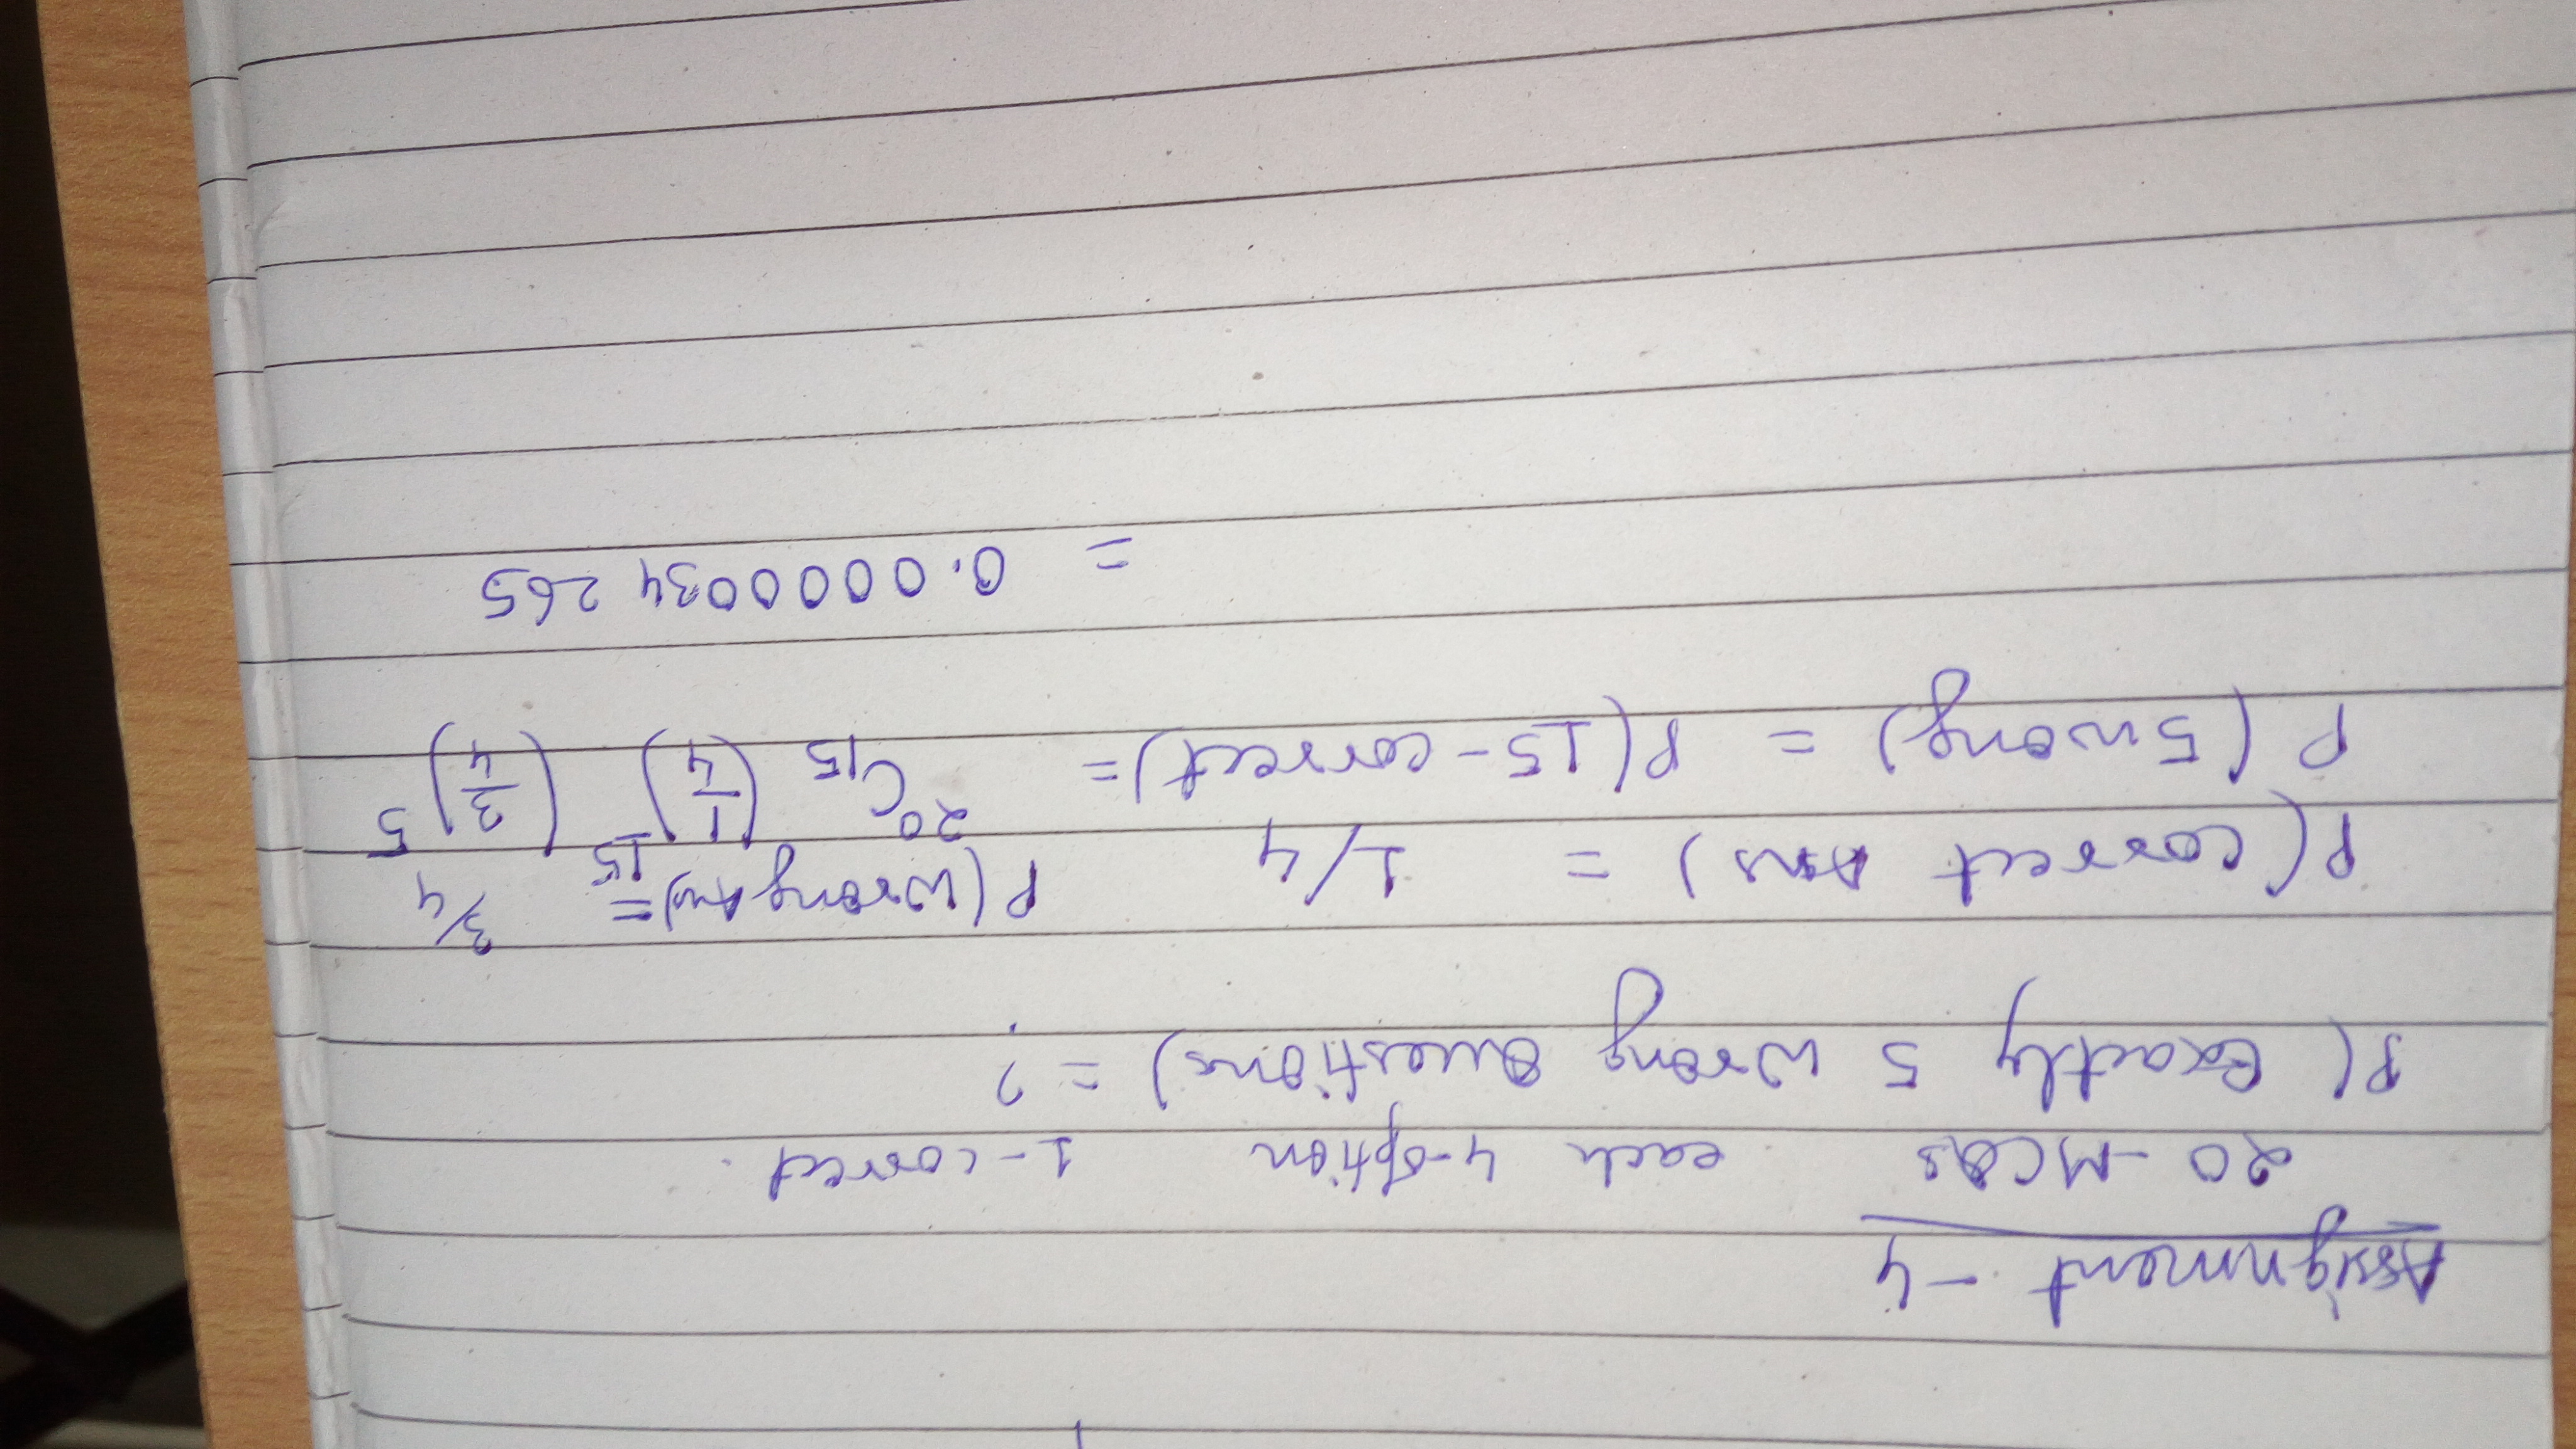 Assignment - 4
20-MCQs each 4-option 1-correct.
P( Exactly 5 Wrong Questions) = ?
P(correct Ans) = 1/4 P(Wrong Ans) = 3/4
P(5 wrong) = P(15-correct) = ²⁰C₁₅ (1/4)¹⁵ (3/4)⁵
= 0.0000034265